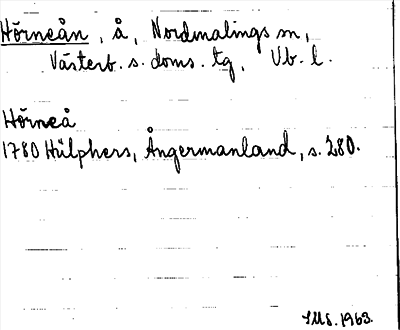 Hörneån, å, Nordmalings sn,
Västerb. s. doms. tg, Vb. l.
Hörneå
1780 Hülphers, Ångermanland, s. 280.
IMS. 1963.